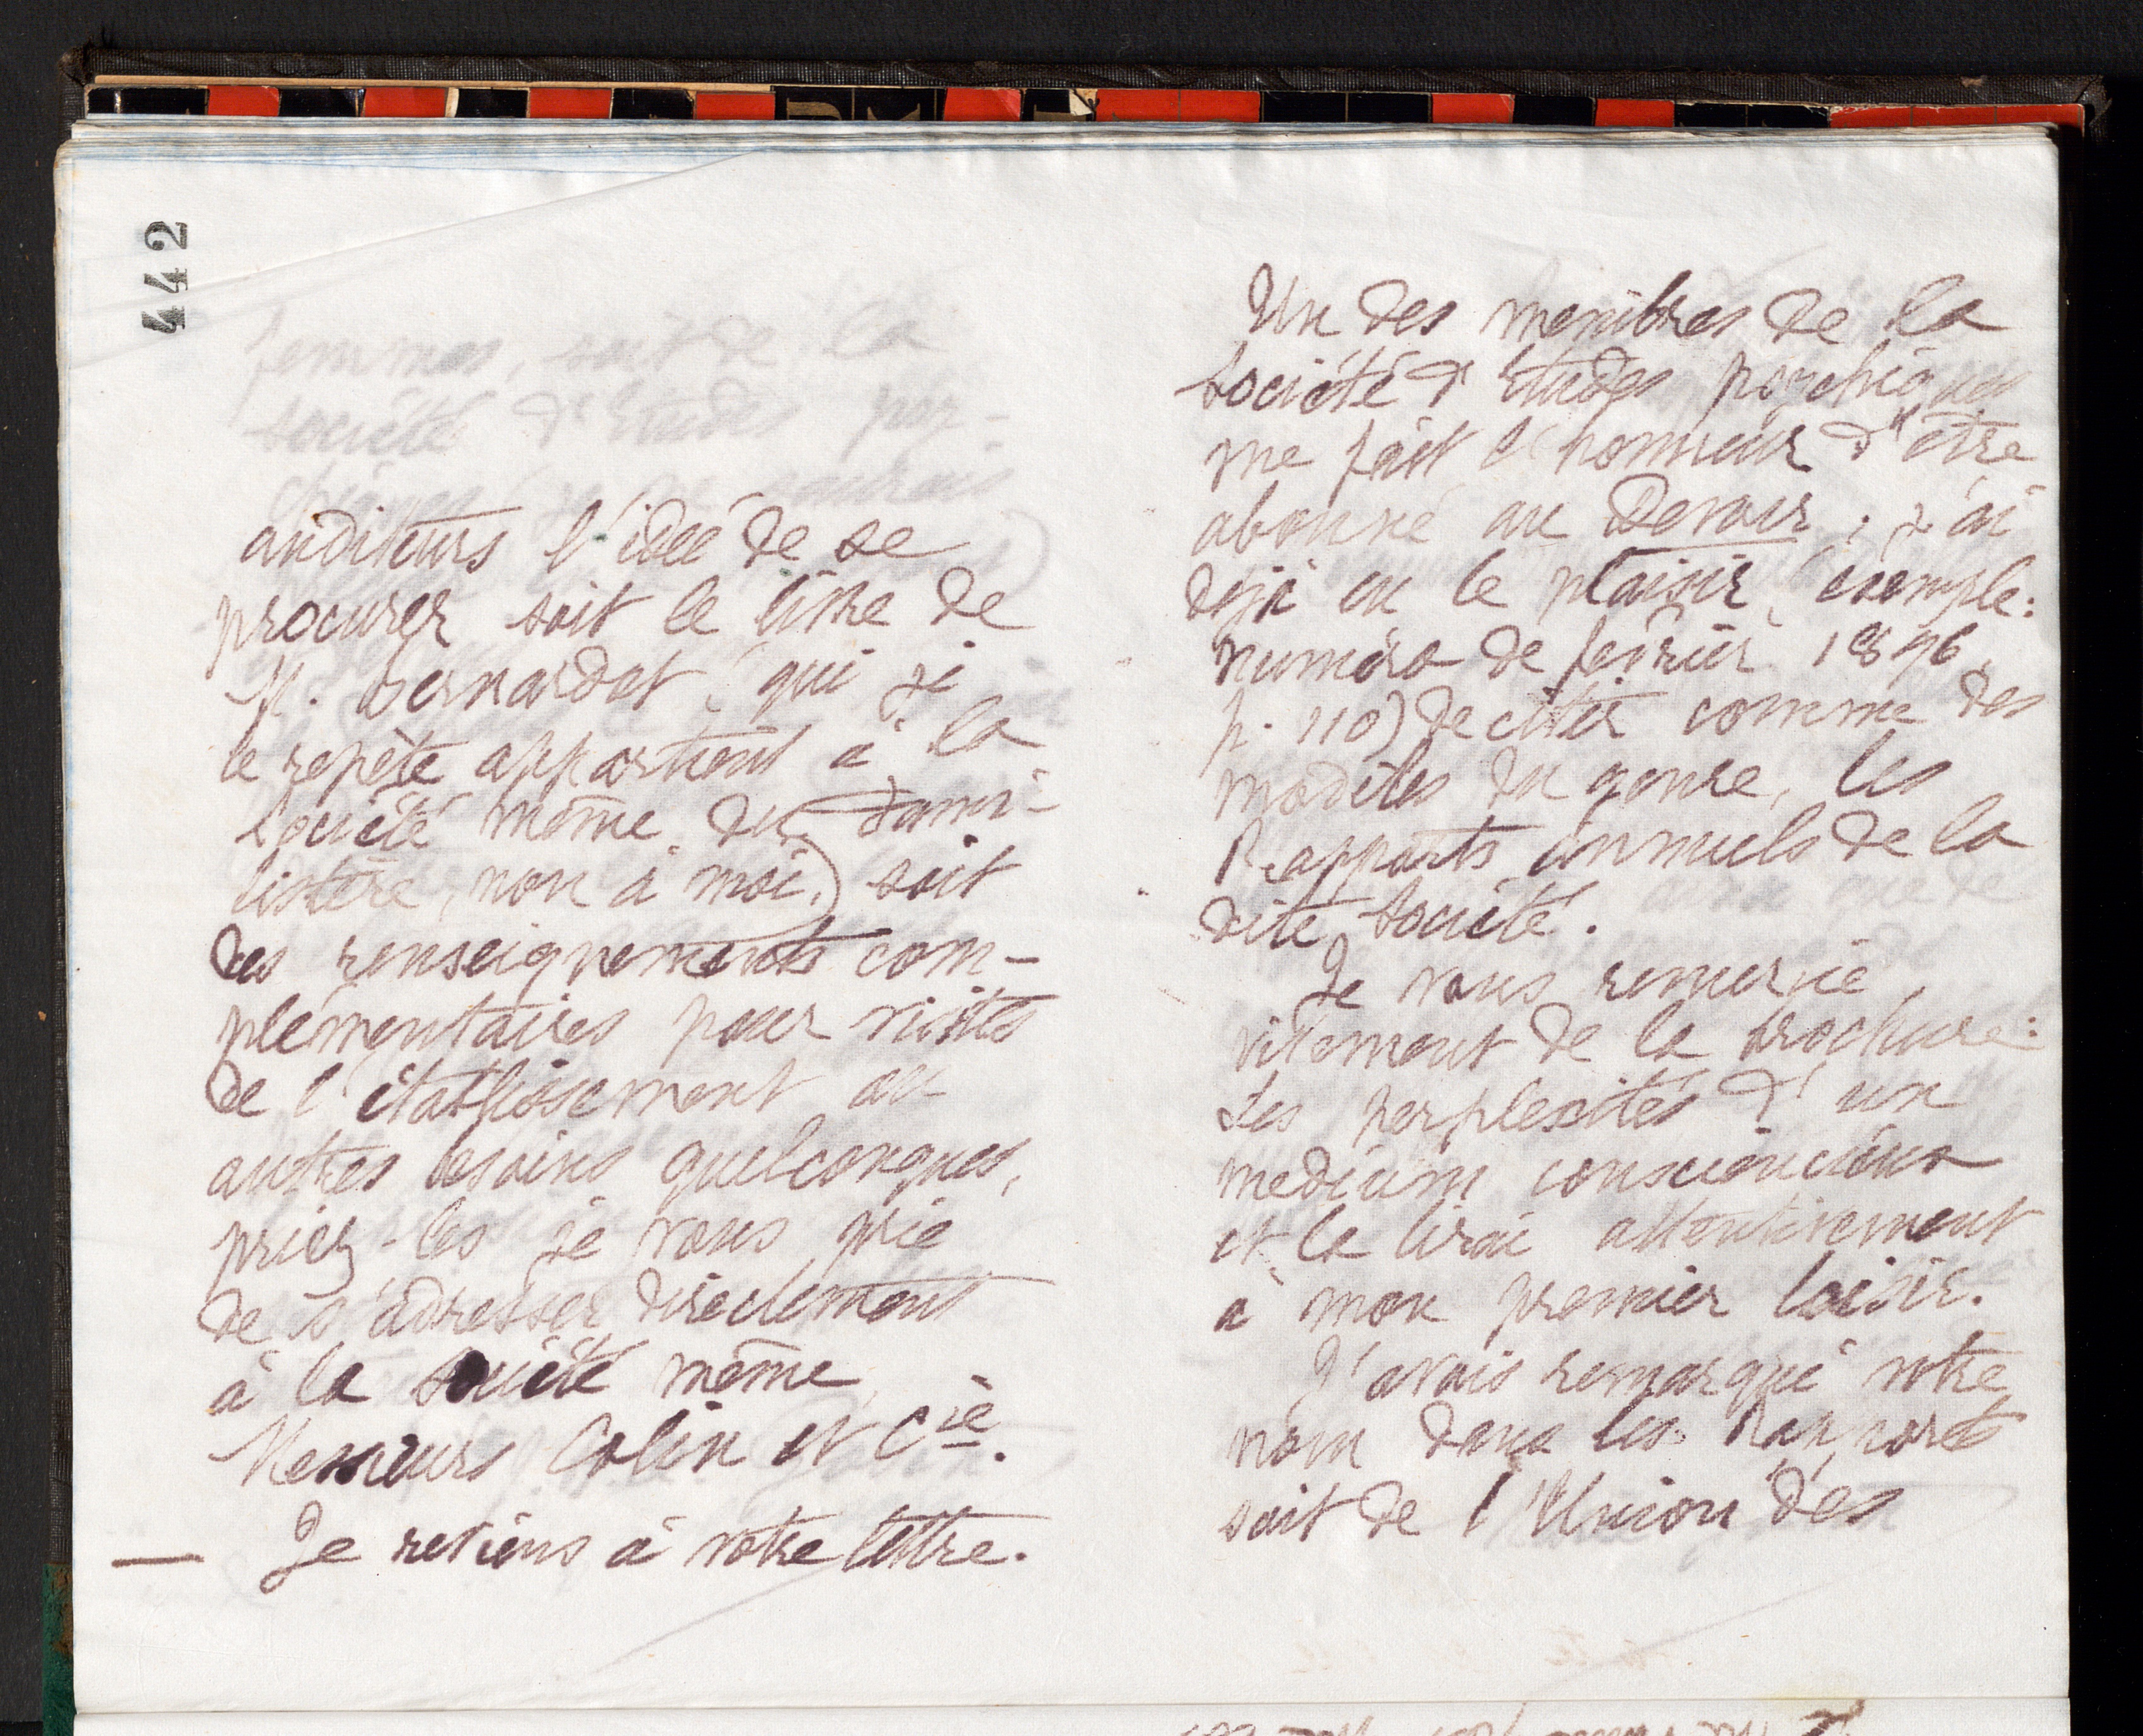 442
auditeurs l'idée de se
procurer soit le livre de
M. Bernardot (qui je
le repète appartient à la
Société même du Fami-
listère, non à moi,) soit
des renseignements com-
plémentaires pour visites
de l'établissement ou
autres besoins quelconques,
priez-les je vous prie
de s'adresser directement
à la société même,
Messieurs Colin et Cie.
— Je reviens à votre lettre.
Un des membres de la
Société d'Etudes psychiques
me fait l'honneur d'être
abonné au Devoir ; j'ai
déjà eu le plaisir (exemple:
numéro de février 1896,
p. 110) de citer comme des
modèles du genre, les
Rapports annuels de la
dite Société.
Je vous remercie
vivement de la brochure:
Les perplexités d'un
medium consciencieux
et la lirai attentivement
à mon premier loisir.
J'avais remarqué votre
nom dans les Rapports
soit de l'Union des